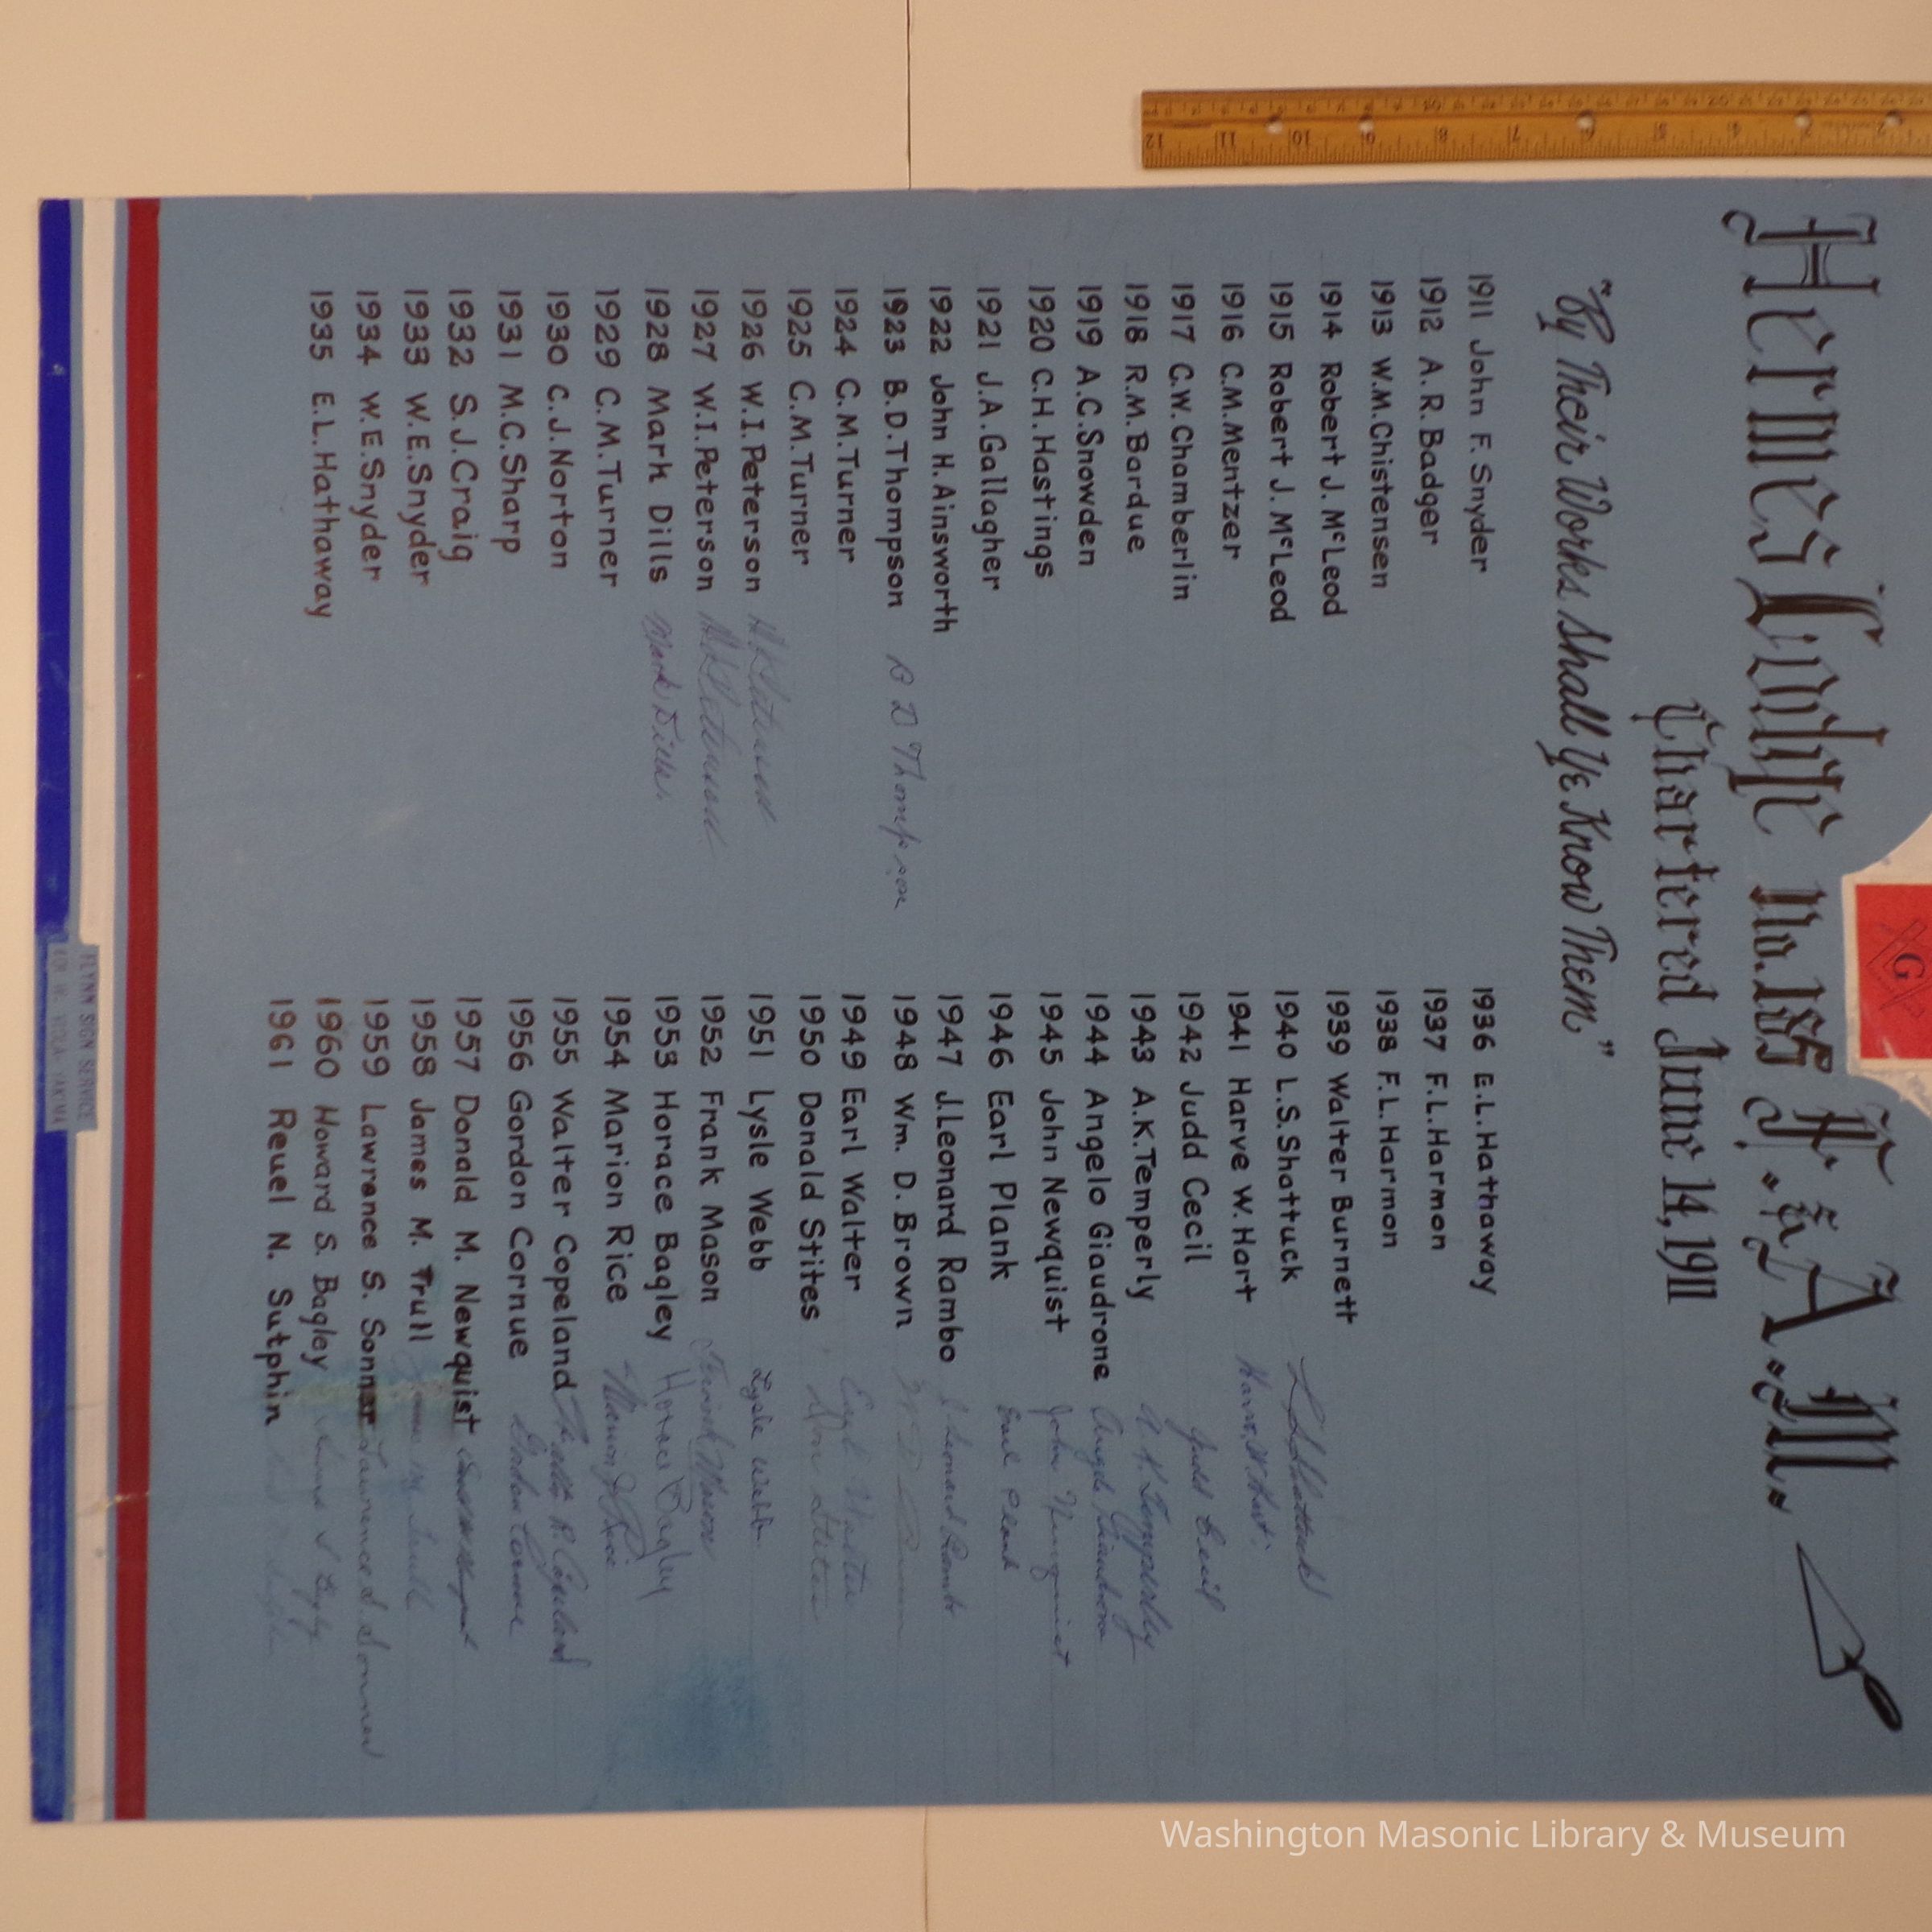 G
Hermes Lodge no. 185 F. & A. M.
Chartered June 14, 1911
"By Their Works Shall Ye Know Them"
1911 John F. Snyder
1912 A.R. Badger
1913 W.M. Chistensen
1914 Robert J. McLeod
1915 Robert J. McLeod
1916 C.M. Mentzer
1917 C.W. Chamberlin
1918 R.M. Bardue
1919 A.C. Snowden
1920 C.H. Hastings
1921 J.A. Gallagher
1922 John H. Ainsworth
1923 B.D. Thompson B D Thompson
1924 C.M. Turner
1925 C.M. Turner
1926 W.I. Peterson
1927 W.I. Peterson
1928 Mark Dills Mark Dills
1929 C.M. Turner
1930 C.J. Norton
1931 M.C. Sharp
1932 S.J. Craig
1933 W.E. Snyder
1934 W.E. Snyder
1935 E.L. Hathaway
1936 E.L. Hathaway
1937 F.L. Harmon
1938 F.L. Harmon
1939 Walter Burnett
1940 L.S. Shattuck L S Shattuck
1941 Harve W. Hart Harve W Hart
1942 Judd Cecil Judd Cecil
1943 A.K. Temperly A. K. Temperly
1944 Angelo Giaudrone Angelo Giaudrone
1945 John Newquist John Newquist
1946 Earl Plank Earl Plank
1947 J. Leonard Rambo J Leonard Rambo
1948 Wm. D. Brown
1949 Earl Walter Earl Walter
1950 Donald Stites Don Stites
1951 Lysle Webb Lysle Webb
1952 Frank Mason Frank Mason
1953 Horace Bagley Horace Bagley
1954 Marion Rice Marion J Rice
1955 Walter Copeland Walter R. Copeland
1956 Gordon Cornue Gordon Cornue
1957 Donald M. Newquist
1958 James M. Trull James M Trull
1959 Lawrance S. Sonnar Lawrence S. Sonner
1960 Howard S. Bagley Howard S Bagley
1961 Reuel N. Sutphin
FLYNN SIGN SERVICE
YAKIMA
12 11 10 9 8 7 6 5 4 3 2
Washington Masonic Library & Museum